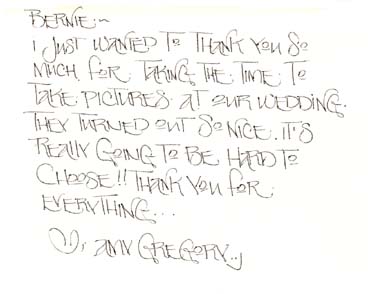 BERNIE:~
I JUST WANTED TO THANK YOU SO
MUCH FOR TAKING THE TIME TO
TAKE PICTURES AT OUR WEDDING.
THEY TURNED OUT SO NICE. IT'S
REALLY GOING TO BE HARD TO
CHOOSE!! THANK YOU FOR
EVERYTHING...
♡, AMY GREGORY..